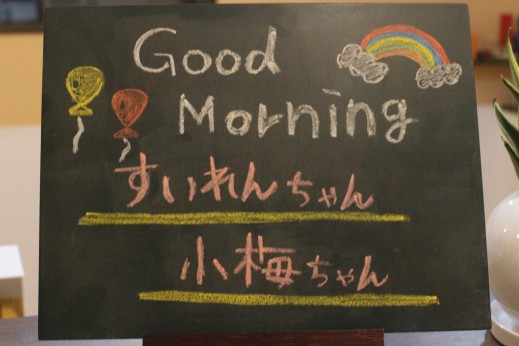 Good
Morning
すいれんちゃん
小梅ちゃん